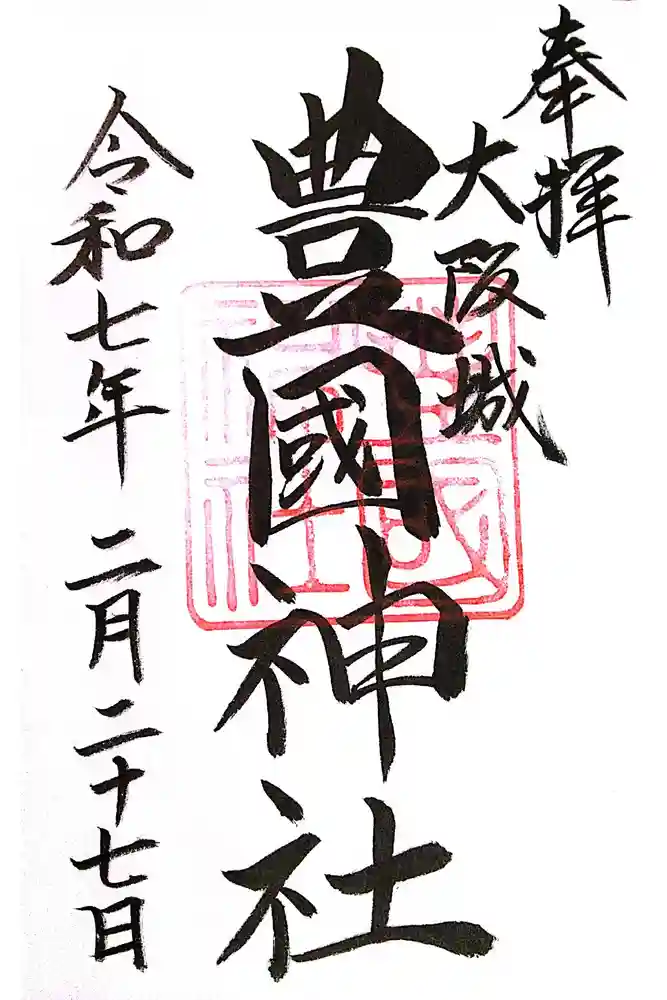 奉拝
大阪城
豊國神社
令和七年 二月二十七日